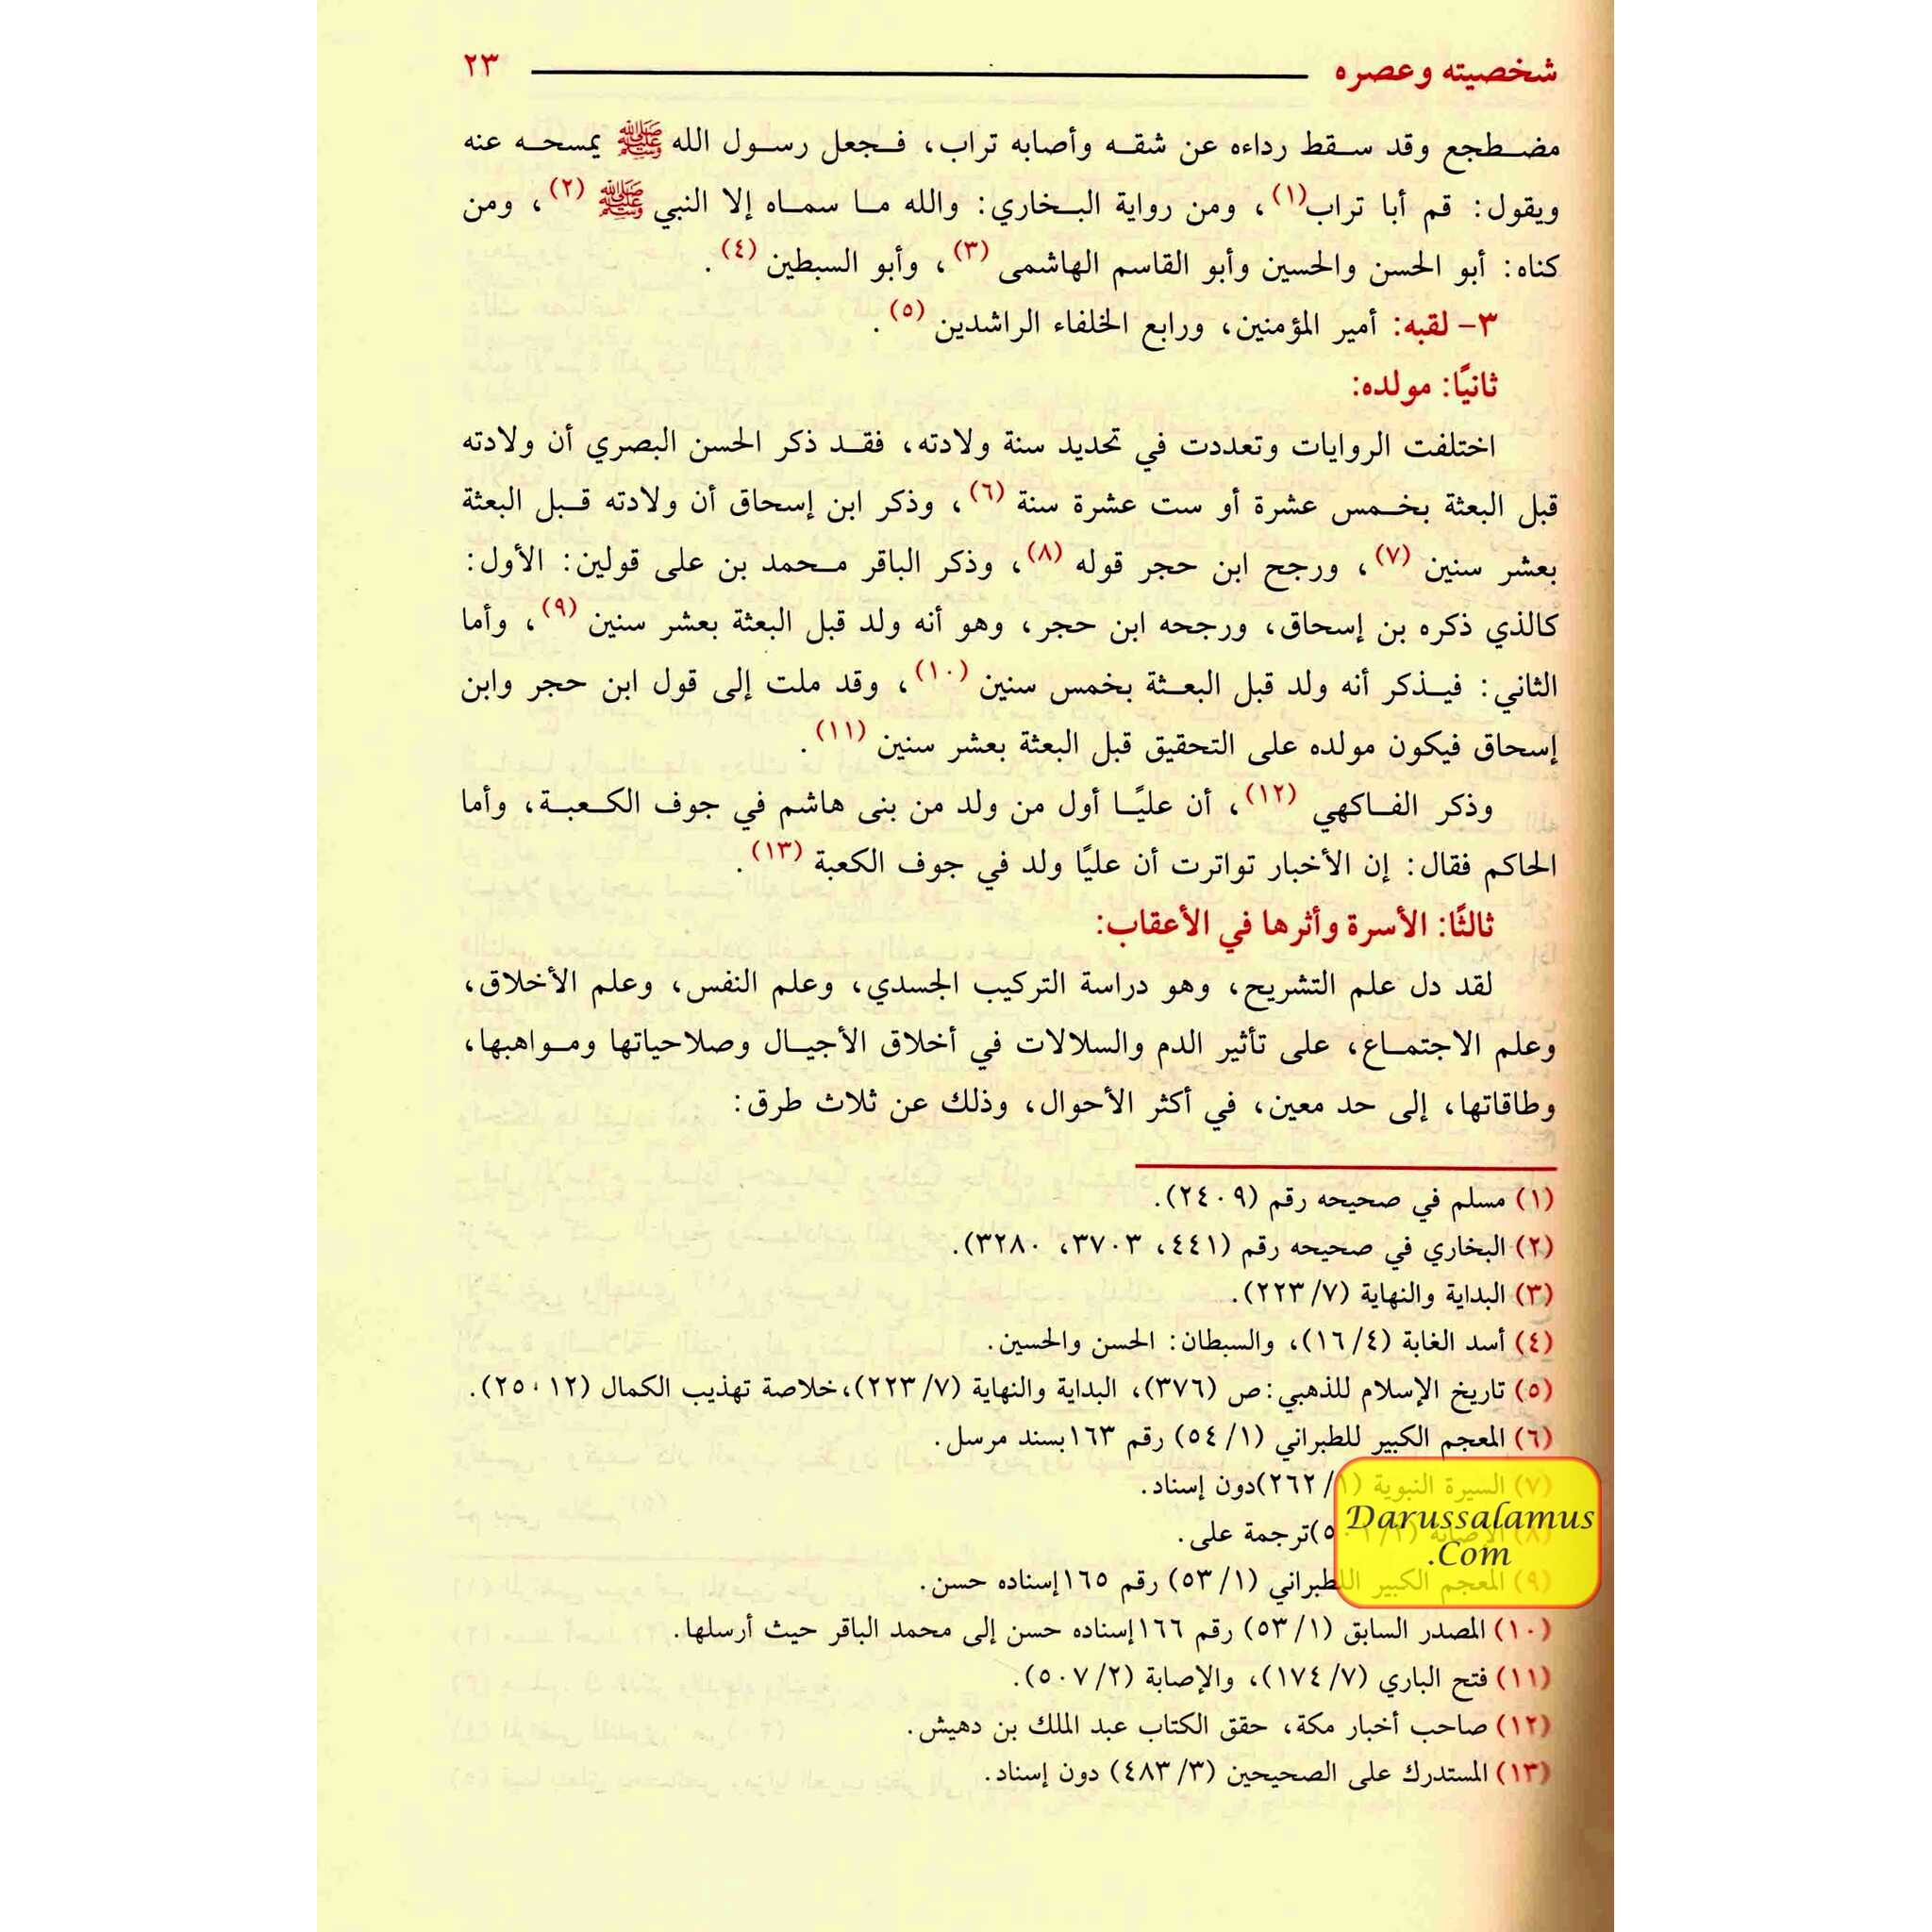 شخصيته وعصره ٢٣
مضطجع وقد سقط رداءه عن شقه وأصابه تراب، فجعل رسول الله ﷺ يمسحه عنه
ويقول: قم أبا تراب(١)، ومن رواية البخاري: والله ما سماه إلا النبي ﷺ (٢)، ومن
كناه: أبو الحسن والحسين وأبو القاسم الهاشمى (٣)، وأبو السبطين (٤).
٣- لقبه: أمير المؤمنين، ورابع الخلفاء الراشدين (٥).
ثانيًا: مولده:
اختلفت الروايات وتعددت في تحديد سنة ولادته، فقد ذكر الحسن البصري أن ولادته
قبل البعثة بخمس عشرة أو ست عشرة سنة (٦)، وذكر ابن إسحاق أن ولادته قبل البعثة
بعشر سنين (٧)، ورجح ابن حجر قوله (٨)، وذكر الباقر محمد بن على قولين: الأول:
كالذي ذكره بن إسحاق، ورجحه ابن حجر، وهو أنه ولد قبل البعثة بعشر سنين (٩)، وأما
الثاني: فيذكر أنه ولد قبل البعثة بخمس سنين (١٠)، وقد ملت إلى قول ابن حجر وابن
إسحاق فيكون مولده على التحقيق قبل البعثة بعشر سنين (١١).
وذكر الفاكهي (١٢)، أن عليًا أول من ولد من بنى هاشم في جوف الكعبة، وأما
الحاكم فقال: إن الأخبار تواترت أن عليًا ولد في جوف الكعبة (١٣).
ثالثًا: الأسرة وأثرها في الأعقاب:
لقد دل علم التشريح، وهو دراسة التركيب الجسدي، وعلم النفس، وعلم الأخلاق،
وعلم الاجتماع، على تأثير الدم والسلالات في أخلاق الأجيال وصلاحياتها ومواهبها،
وطاقاتها، إلى حد معين، في أكثر الأحوال، وذلك عن ثلاث طرق:
(١) مسلم في صحيحه رقم (٢٤٠٩).
(٢) البخاري في صحيحه رقم (٤٤١، ٣٧٠٣، ٣٢٨٠).
(٣) البداية والنهاية (٢٢٣/٧).
(٤) أسد الغابة (١٦/٤)، والسبطان: الحسن والحسين.
(٥) تاريخ الإسلام للذهبي: ص (٣٧٦)، البداية والنهاية (٢٢٣/٧)،خلاصة تهذيب الكمال (٢٥٠١٢).
(٦) المعجم الكبير للطبراني (٥٤/١) رقم ١٦٣بسند مرسل.
(٧) السيرة النبوية (٢٦٢/١)دون إسناد.
(٨) الإصابة ترجمة على.
(٩) المعجم الكبير اللطبراني (٥٣/١) رقم ١٦٥إسناده حسن.
(١٠) المصدر السابق (٥٣/١) رقم ١٦٦إسناده حسن إلى محمد الباقر حيث أرسلها.
(١١) فتح الباري (١٧٤/٧)، والإصابة (٥٠٧/٢).
(١٢) صاحب أخبار مكة، حقق الكتاب عبد الملك بن دهيش.
(١٣) المستدرك على الصحيحين (٤٨٣/٣) دون إسناد.
Darussalamus
.Com